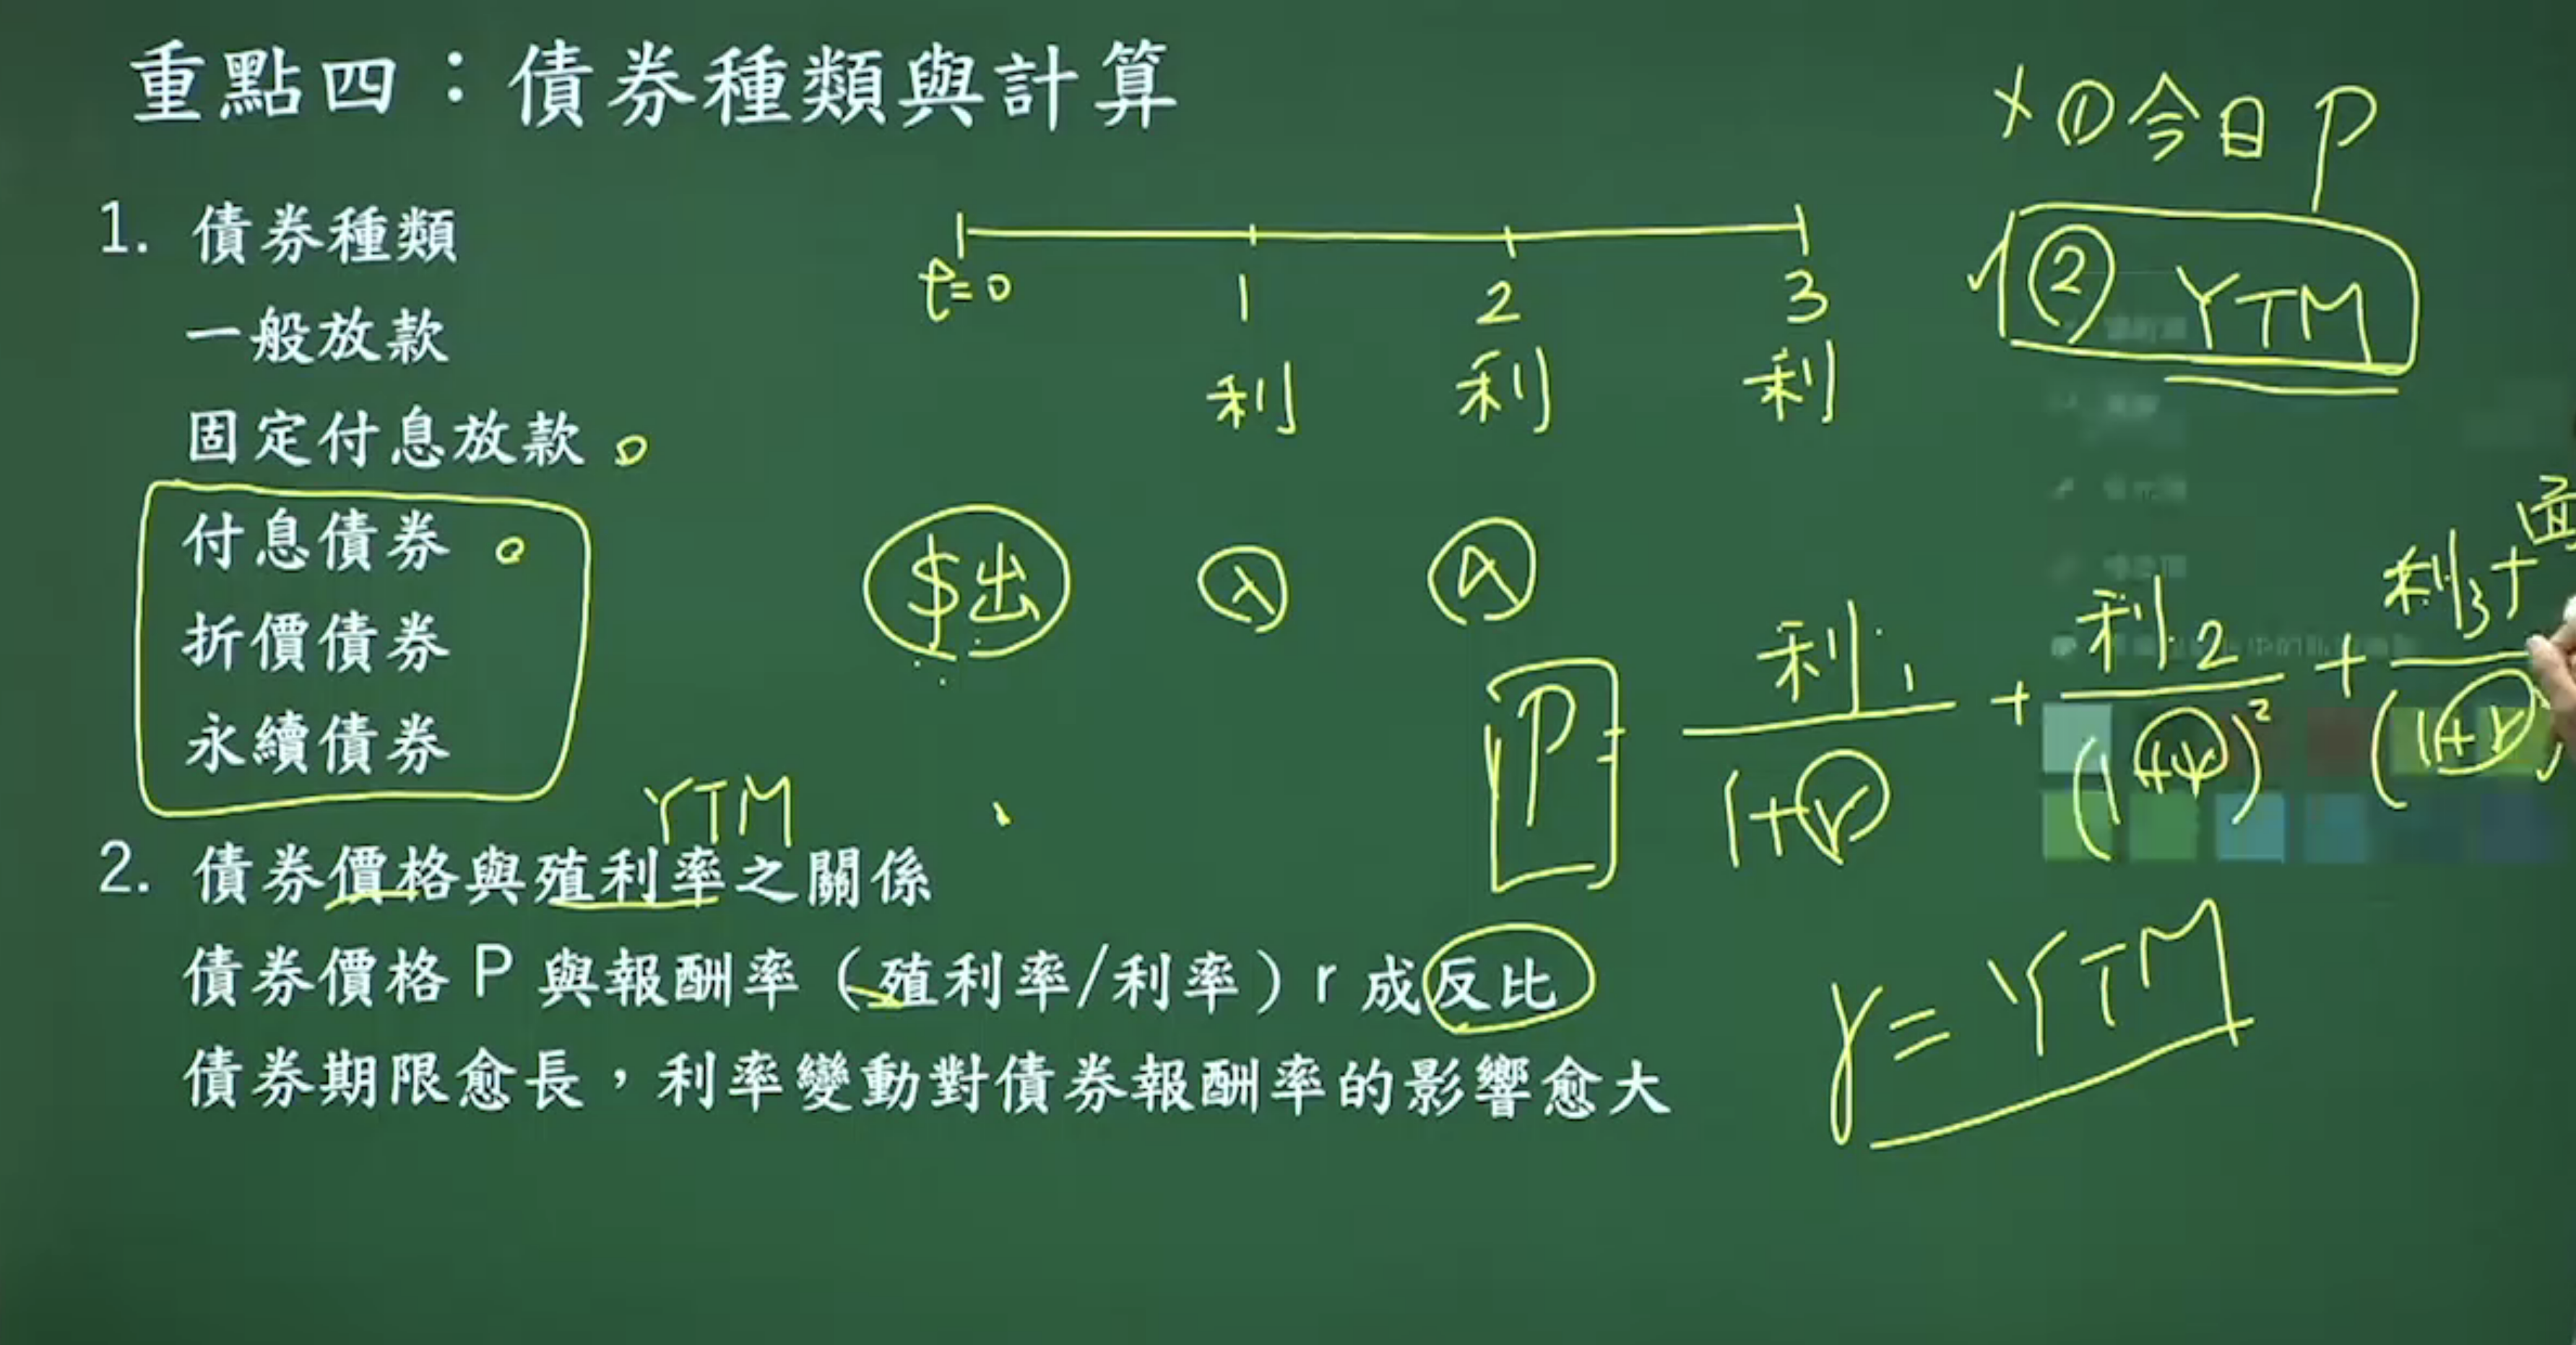 重點四：債券種類與計算
1. 債券種類
一般放款
固定付息放款
付息債券
折價債券
永續債券
2. 債券價格與殖利率之關係
債券價格 P 與報酬率（殖利率/利率）r 成反比
債券期限愈長，利率變動對債券報酬率的影響愈大
YTM
t=0 1 2 3
利 利 利
$出 入 入
① 今日 P
② YTM
P = 利1/(1+r) + 利2/(1+r)² + 利3+面/(1+r)
r = YTM